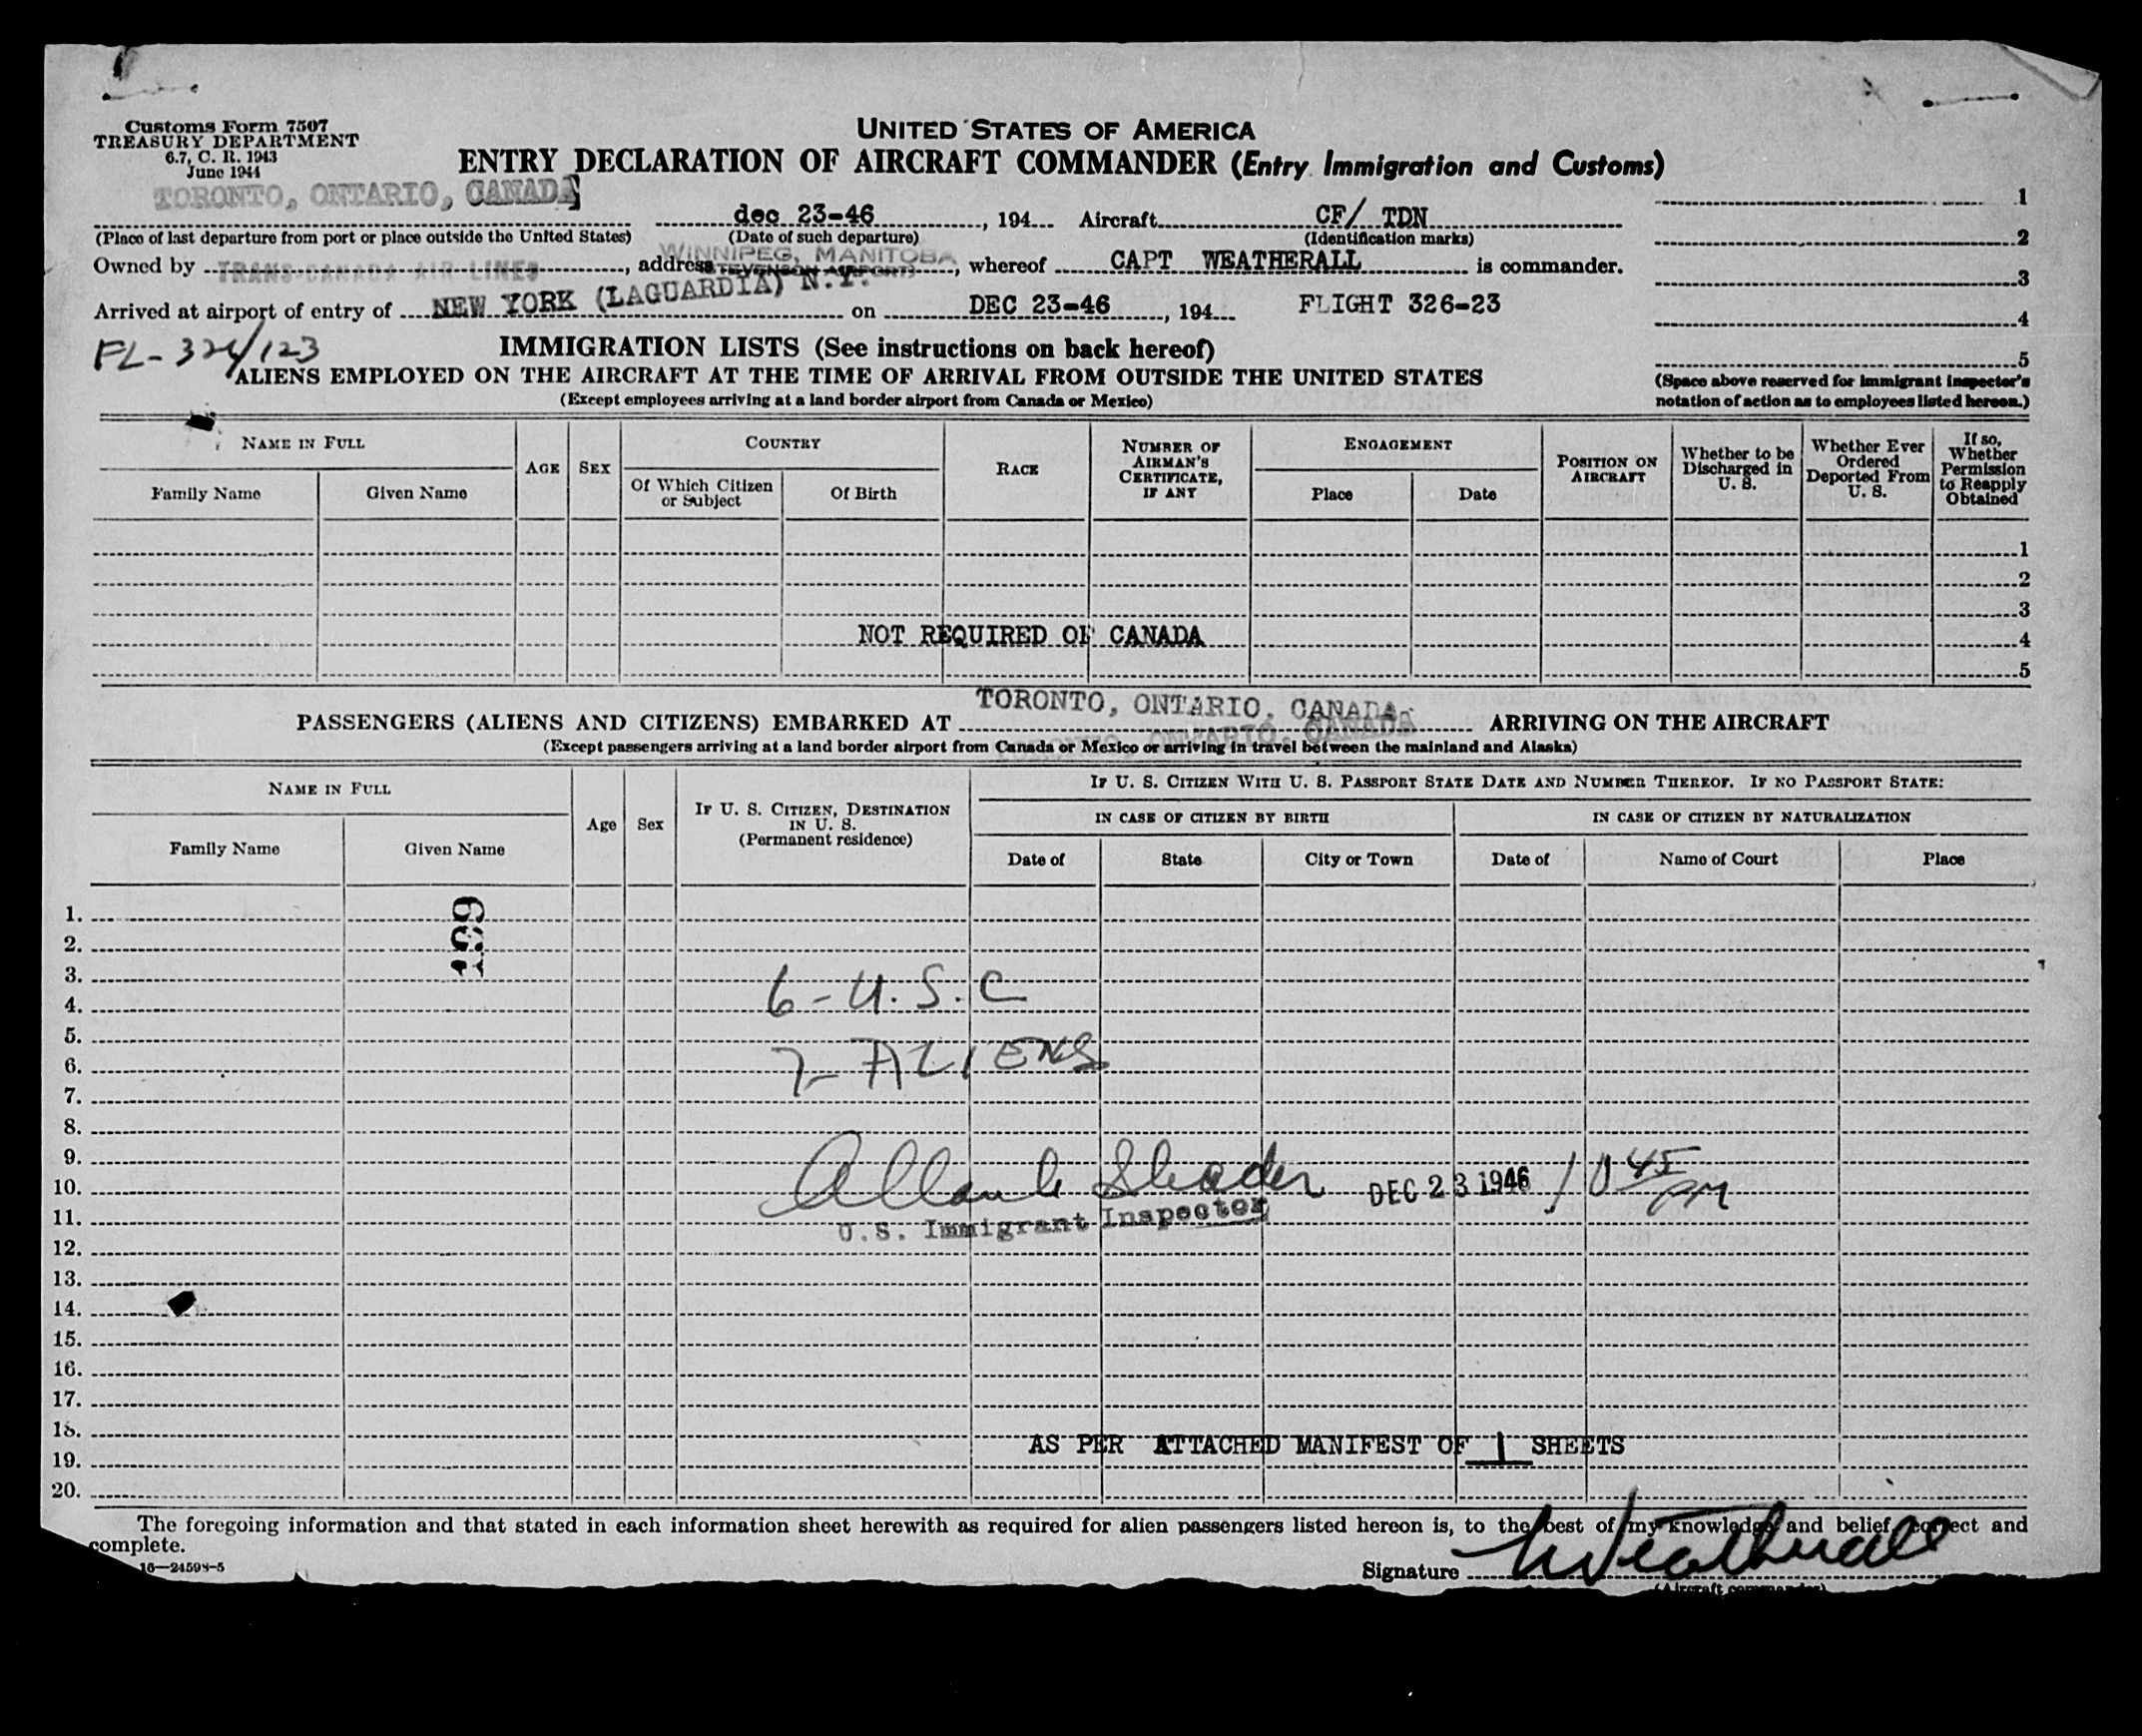 Customs Form 7507
TREASURY DEPARTMENT
6.7, C. R. 1943
June 1944
UNITED STATES OF AMERICA
ENTRY DECLARATION OF AIRCRAFT COMMANDER (Entry Immigration and Customs)
TORONTO, ONTARIO, CANADA
dec 23-46, 194 Aircraft CF/ TDN
(Place of last departure from port or place outside the United States) (Date of such departure) (Identification marks)
WINNIPEG, MANITOBA
Owned by TRANS-CANADA AIR LINES, address (STEVENSON AIRPORT), whereof CAPT WEATHERALL is commander.
Arrived at airport of entry of NEW YORK (LAGUARDIA) N.Y. on DEC 23-46, 194 FLIGHT 326-23
1
2
3
4
5
(Space above reserved for immigrant inspector's
notation of action as to employees listed hereon.)
FL-326/123
IMMIGRATION LISTS (See instructions on back hereof)
ALIENS EMPLOYED ON THE AIRCRAFT AT THE TIME OF ARRIVAL FROM OUTSIDE THE UNITED STATES
(Except employees arriving at a land border airport from Canada or Mexico)
NAME IN FULL
Family Name
Given Name
AGE
SEX
COUNTRY
Of Which Citizen
or Subject
Of Birth
RACE
NUMBER OF
AIRMAN'S
CERTIFICATE,
IF ANY
ENGAGEMENT
Place
Date
POSITION ON
AIRCRAFT
Whether to be
Discharged in
U. S.
Whether Ever
Ordered
Deported From
U. S.
If so,
Whether
Permission
to Reapply
Obtained
1
2
3
NOT REQUIRED OF CANADA 4
5
TORONTO, ONTARIO, CANADA
PASSENGERS (ALIENS AND CITIZENS) EMBARKED AT ARRIVING ON THE AIRCRAFT
TORONTO, ONTARIO, CANADA
(Except passengers arriving at a land border airport from Canada or Mexico or arriving in travel between the mainland and Alaska)
NAME IN FULL
Family Name
Given Name
Age
Sex
IF U. S. CITIZEN, DESTINATION
IN U. S.
(Permanent residence)
IF U. S. CITIZEN WITH U. S. PASSPORT STATE DATE AND NUMBER THEREOF. IF NO PASSPORT STATE:
IN CASE OF CITIZEN BY BIRTH
Date of
State
City or Town
IN CASE OF CITIZEN BY NATURALIZATION
Date of
Name of Court
Place
199
1.
2.
3.
6-U.S.C
4.
5.
7-ALIENS
6.
7.
8.
9.
10. DEC 23 1946 10 45 PM
11. U.S. Immigrant Inspector
12.
13.
14.
15.
16.
17.
18.
AS PER ATTACHED MANIFEST OF 1 SHEETS
19.
20.
The foregoing information and that stated in each information sheet herewith as required for alien passengers listed hereon is, to the best of my knowledge and belief, correct and
complete.
16—24598-5
Signature Weatherall
(Aircraft commander)